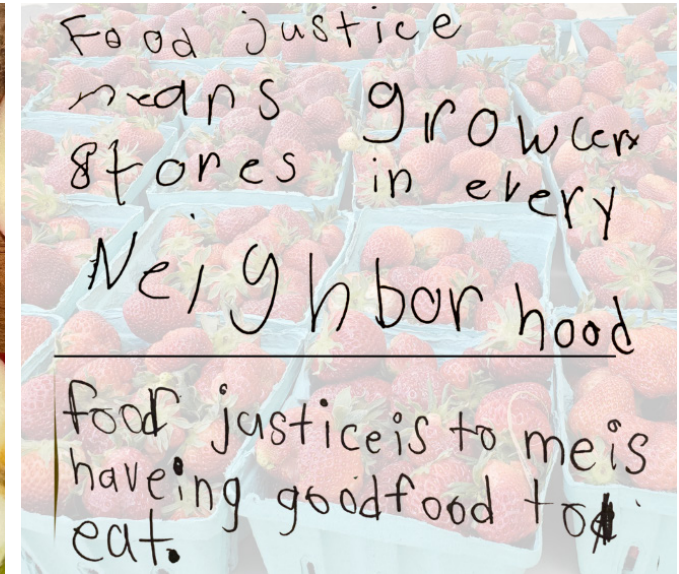 Food justice
means growcery
stores in every
Neighborhood
food justiceis to meis
haveing goodfood to
eat.